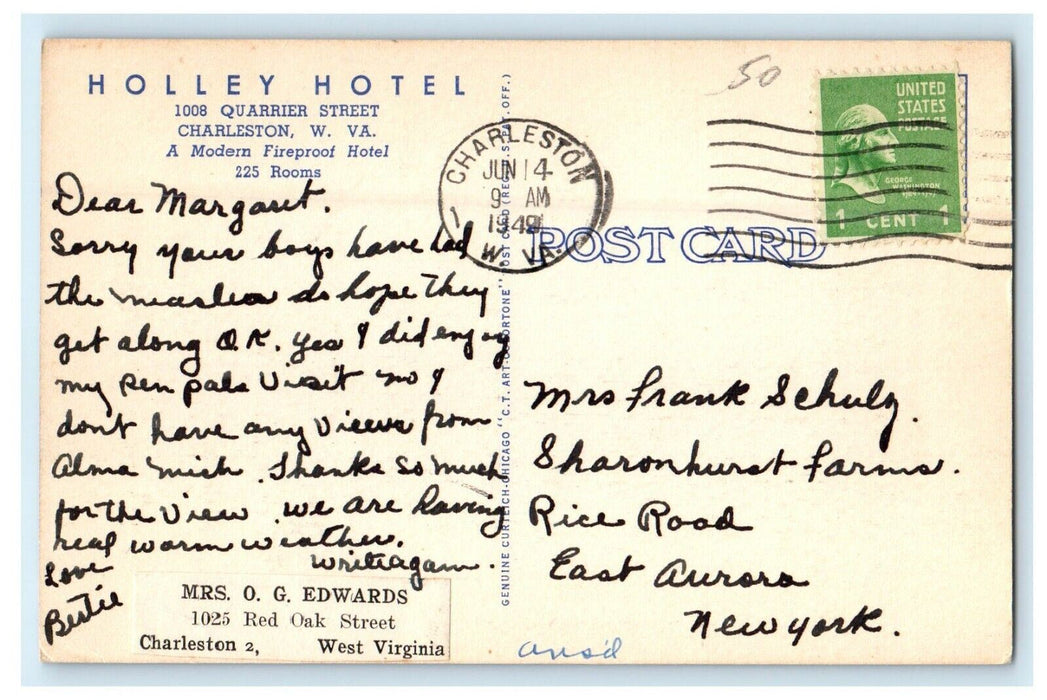 HOLLEY HOTEL
1008 QUARRIER STREET
CHARLESTON, W. VA.
A Modern Fireproof Hotel
225 Rooms
Dear Margaret.
Sorry your boys have had
the measles do hope they
get along O.K. yes I did enjoy
my pen pals Visit no I
don't have any Views from
Alma Mich. Thanks so much
for the View. we are having
real warm weather.
write again.
Love
Bertie
MRS. O. G. EDWARDS
1025 Red Oak Street
Charleston 2, West Virginia
GENUINE CURTEICH-CHICAGO "C.T. ART-COLORTONE" POST CARD (REG. U.S. PAT. OFF.)
50
CHARLESTON
JUN 14
9 AM
W. VA.
UNITED
STATES
POSTAGE
GEORGE
WASHINGTON
1 CENT 1
POST CARD
Mrs Frank Schulz.
Sharonhurst Farms.
Rice Road
East Aurora
New york.
ansd